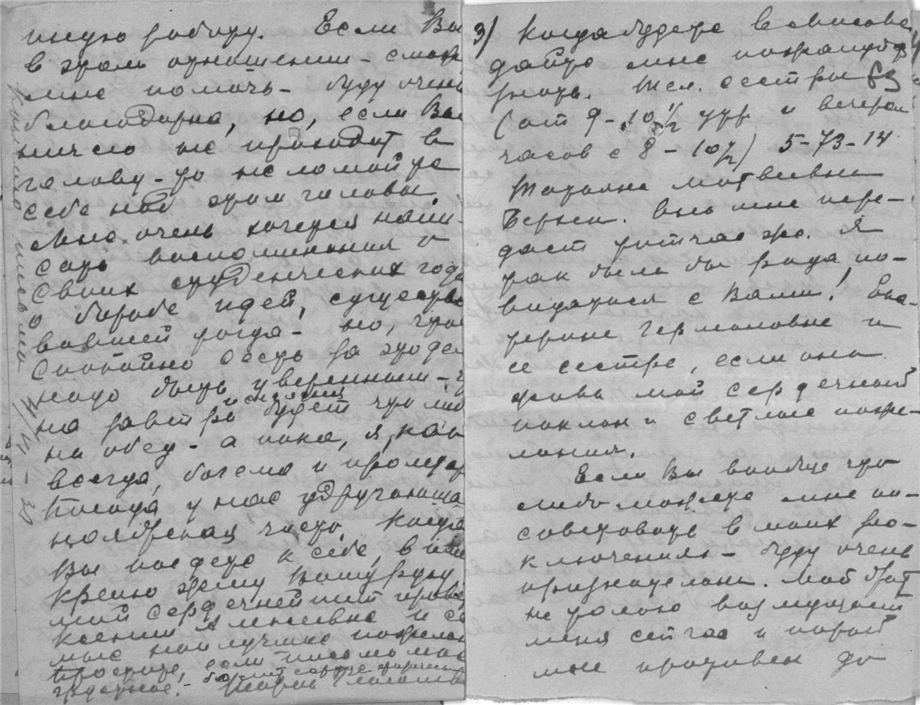 иную работу. Если Вы
в этом отношении - сможе
мне помочь - буду очень
благодарна, но, если Вам
ничего не приходит в
голову - то не ломайте
себе над этим головы.
Мне очень хочется напи-
сать воспоминания о
своих студенческих года
о борьбе идей, существо
вавшей тогда - но, чтоб
спокойно сесть за это дел
надо быть уверенным,
на завтра будет что либ
на обед - а пока, я, как
всегда, богема и пролетар
Погода у нас удручающая
ноябрская часто. Когда
Вы поедете к себе, в
Крепко жму Вашу руку
мой сердечнейший приве
Ксении и се
мье наилучшие пожелан
простите, если письмо
3) Когда будете в
дайте мне пожалуйста
знать. Тел. сестры
(от 9 - 10 1/2 утр и вечером
часов с 8 - 10 1/2) 5-73-14
Татьяна Матвеевна
она мне пере-
даст тотчас же. Я
так была бы рада по-
видаться с Вами! Ека-
терине Германовне и
ее сестре, если она
жива мой сердечный
поклон и светлые поже-
лания.
Если Вы вообще что
либо можете мне по-
советовать в моих
буду очень
признательна. Мой брат
не только возмущает
меня сейчас и порой
мне противен до